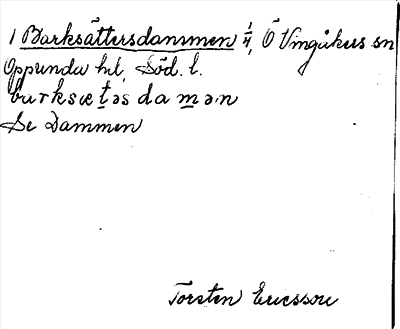 1 Barksättersdammen 1/4, Ö Vingåkers sn
Oppunda hd, Söd. l.
barksætəs damən
Se Dammen
Torsten Ericsson